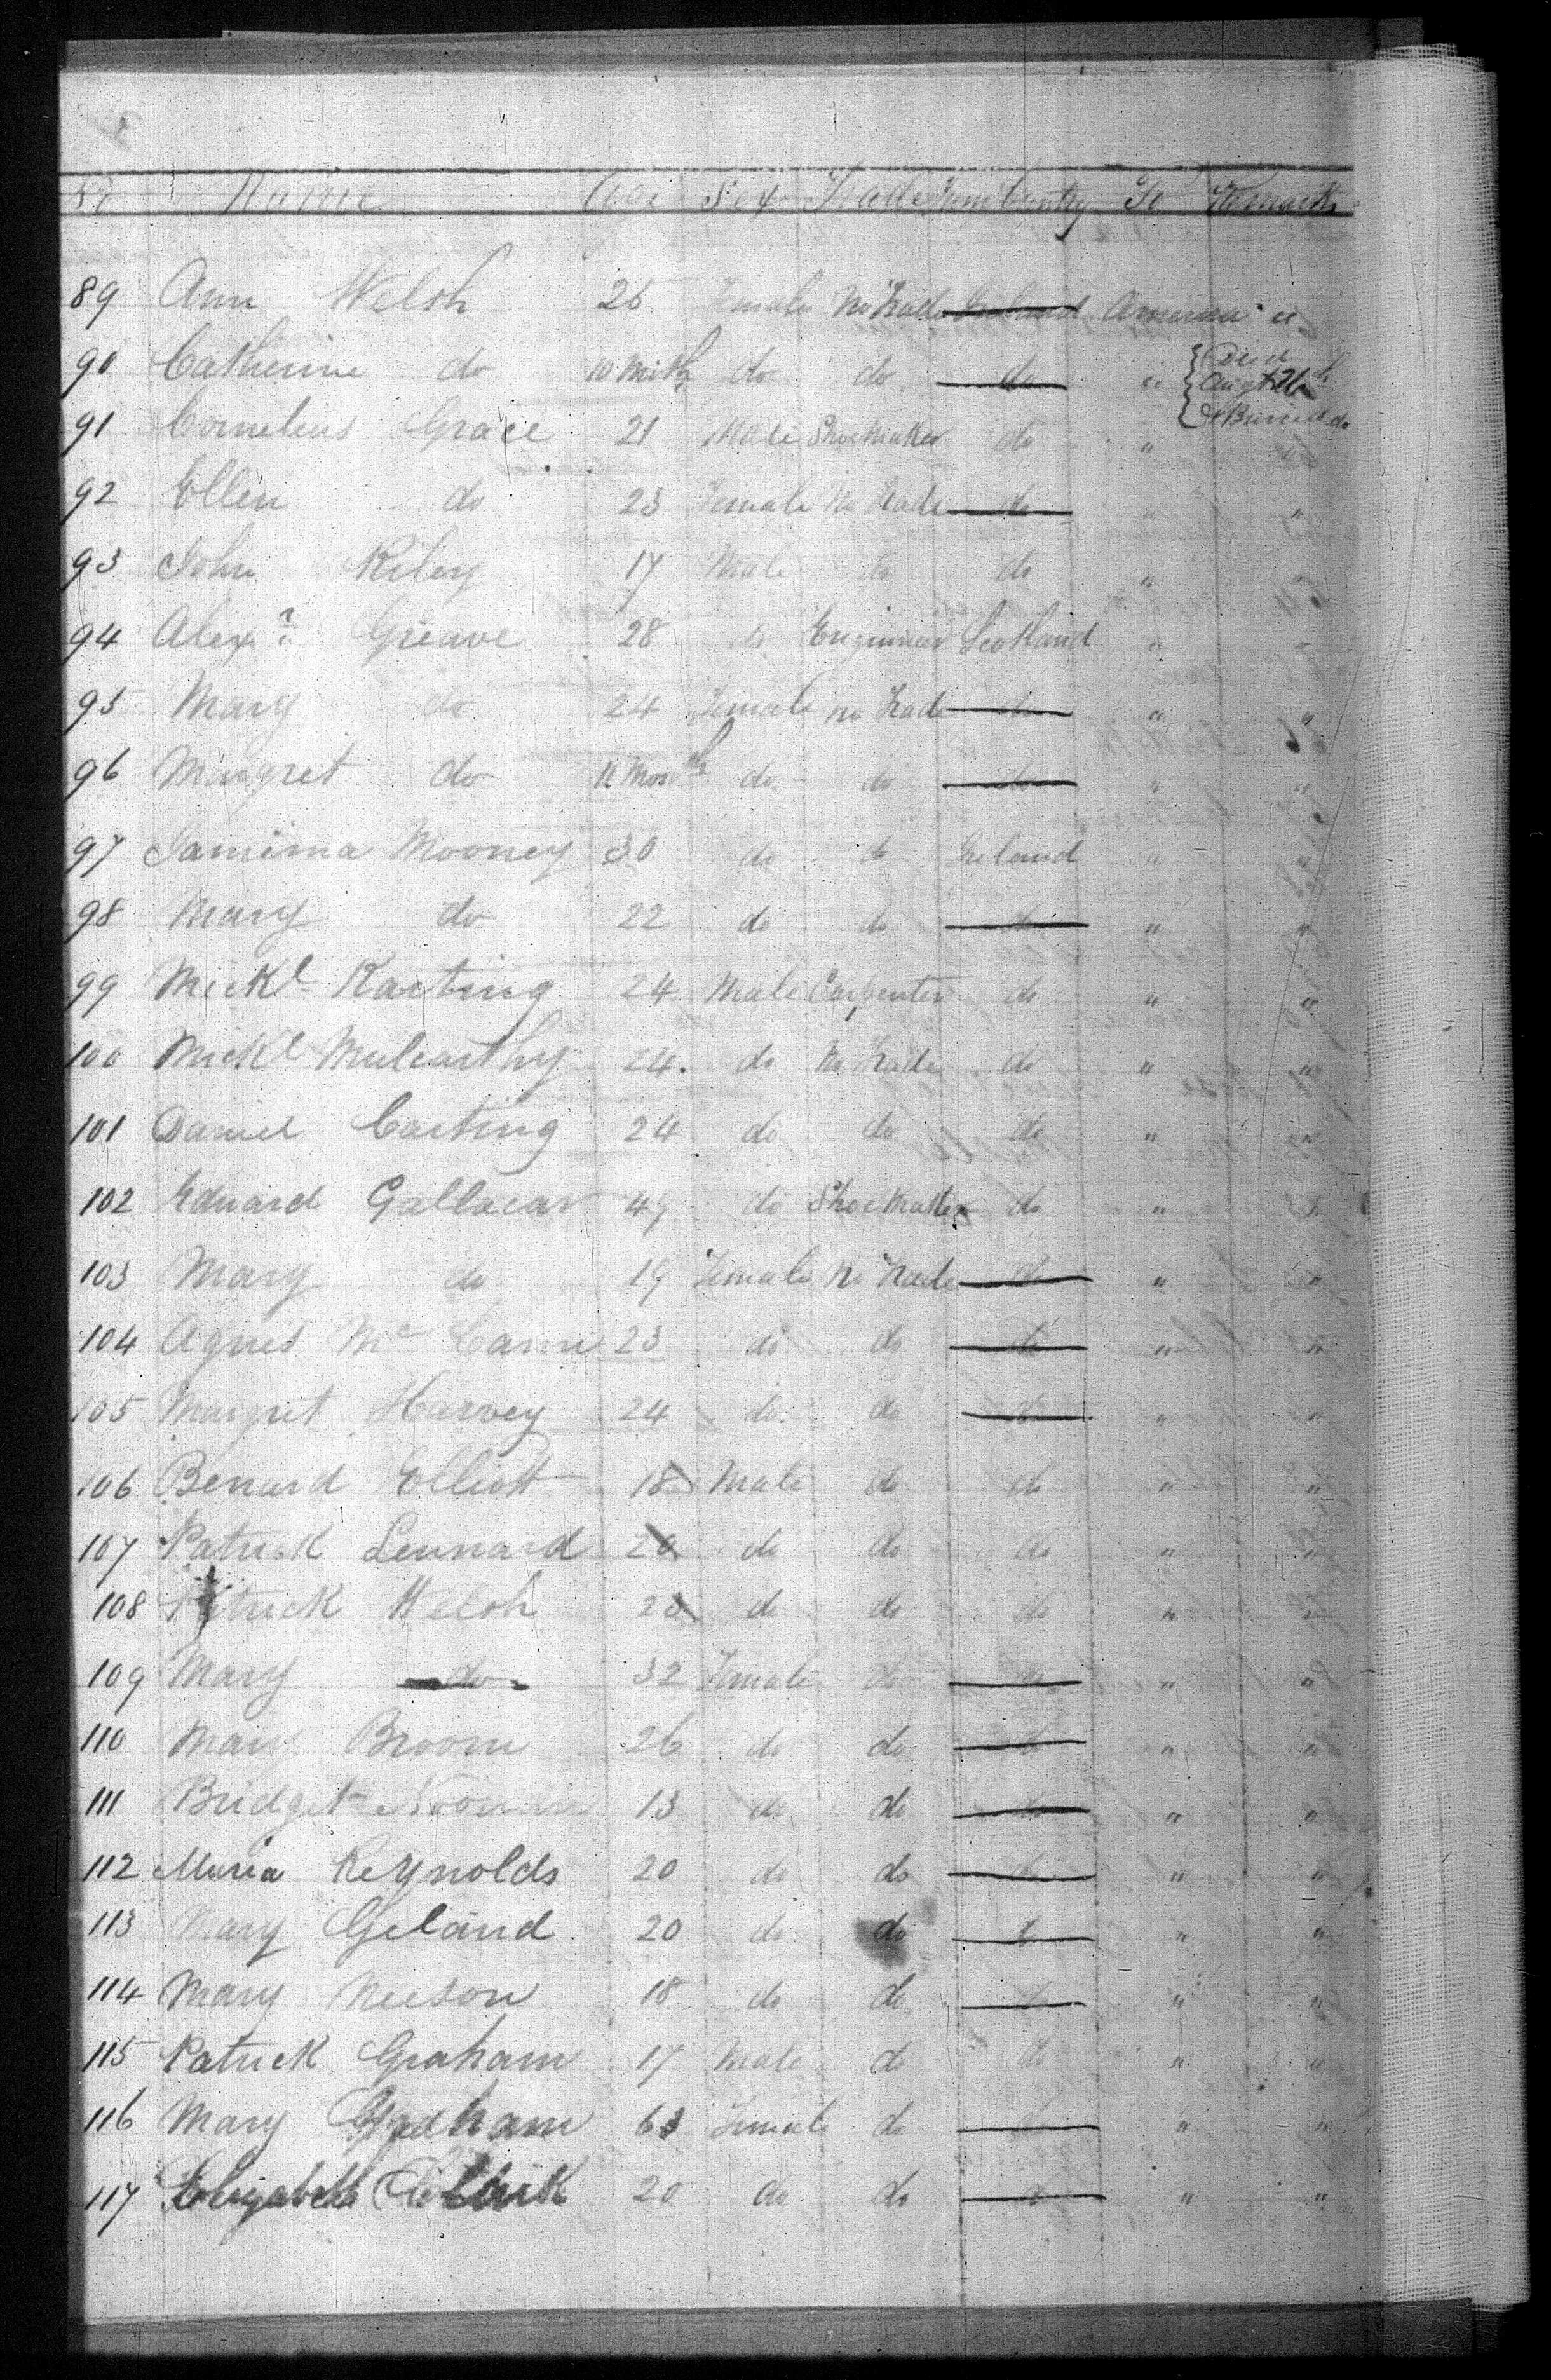 No Name Age Sex Trade From Country To Remarks
89 Ann Welsh 25 Female No Trade Ireland America "
90 Catherine do 10 Mnths do do do " Died Augt 26th
91 Cornelius Grace 21 Male Shoemaker do " & Buried do
92 Ellen do 23 Female No Trade do " "
93 John Riley 17 Male do do " "
94 Alexr Greave 28 do Enginiear Scotland " "
95 Mary do 24 Female no Trade do " "
96 Margret do 11 Monsth do do do " "
97 Jamima Mooney 30 do do Ireland " "
98 Mary do 22 do do do " "
99 Mickl Karting 24 Male Carpenter do " "
100 Mickl Mulcarthy 24. do No Trade do " "
101 Daniel Carting 24 do do do " "
102 Edward Gallacar 49 do ShoeMaker do " "
103 Mary do 19 Female No Trade do " "
104 Agnes Mc Cann 23 do do do " "
105 Margret Harvey 24 do do do " "
106 Benard Elliott 18 Male do do " "
107 Patrick Lennard 20 do do do " "
108 Patrick Welsh do do do " "
109 Mary do 32 Female do do " "
110 Mary Broom 26 do do do " "
111 Bridget Noonan 13 do do do " "
112 Maria Reynolds 20 do do do " "
113 Mary Geland 20 do do do " "
114 Mary Neeson 18 do do do " "
115 Patrick Graham 17 Male do do " "
116 Mary Graham 63 Female do do " "
117 Elizabeth 20 do do do " "